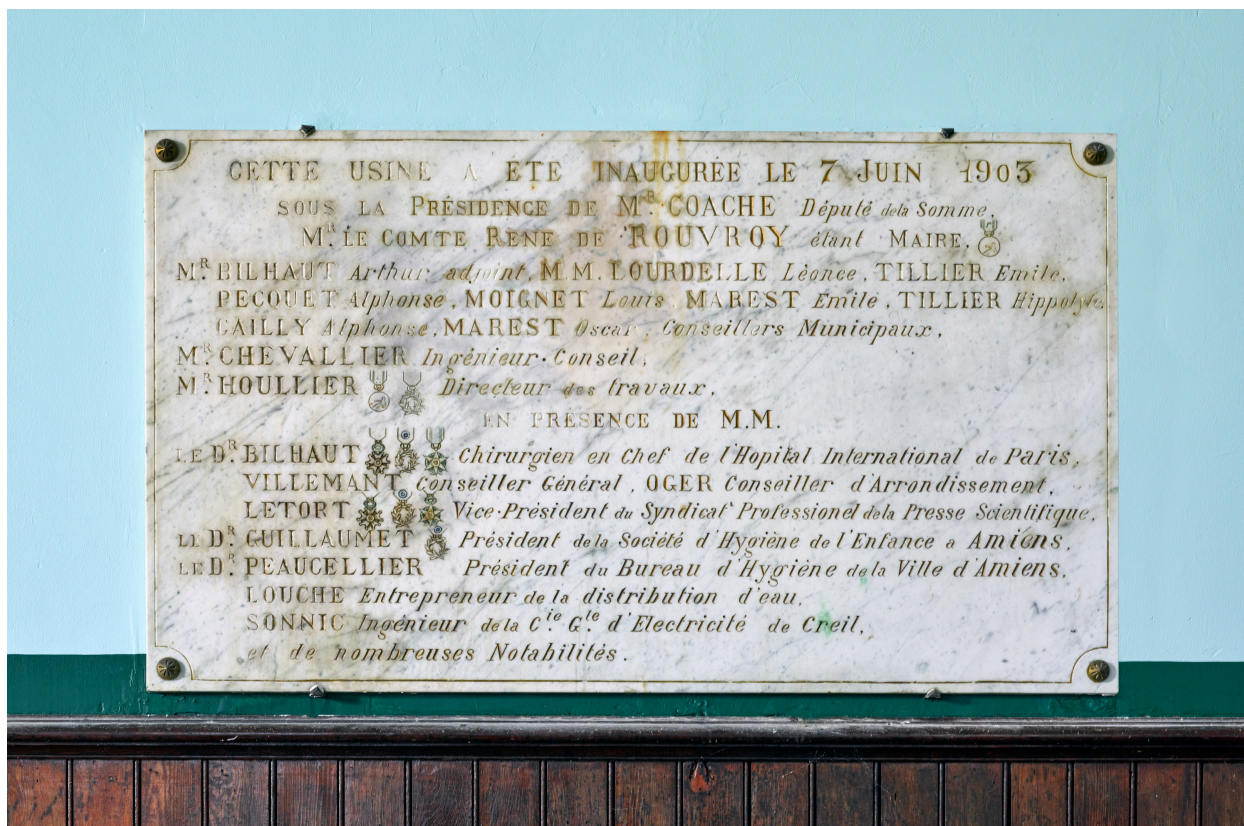 CETTE USINE A ÉTÉ INAUGURÉE LE 7 JUIN 1903
SOUS LA PRÉSIDENCE DE MR. COACHE Député de la Somme,
MR. LE COMTE RENE DE ROUVROY étant MAIRE,
MR. BILHAUT Arthur adjoint, M.M. LOURDELLE Léonce, TILLIER Emile,
PECQUET Alphonse, MOIGNET Louis, MAREST Emile, TILLIER Hippolyte,
CAILLY Alphonse, MAREST Oscar, Conseillers Municipaux,
MR. CHEVALLIER Ingénieur-Conseil,
MR. HOULLIER Directeur des travaux,
EN PRÉSENCE DE M.M.
LE DR. BILHAUT Chirurgien en Chef de l'Hopital International de Paris,
VILLEMANT Conseiller Général, OGER Conseiller d'Arrondissement,
LETORT Vice-Président du Syndicat Professionel de la Presse Scientifique,
LE DR. GUILLAUMET Président de la Société d'Hygiène de l'Enfance a Amiens,
LE DR. PEAUCELLIER Président du Bureau d'Hygiène de la Ville d'Amiens,
LOUCHE Entrepreneur de la distribution d'eau,
SONNIC Ingénieur de la Cie. Gle. d'Electricité de Creil,
et de nombreuses Notabilités.